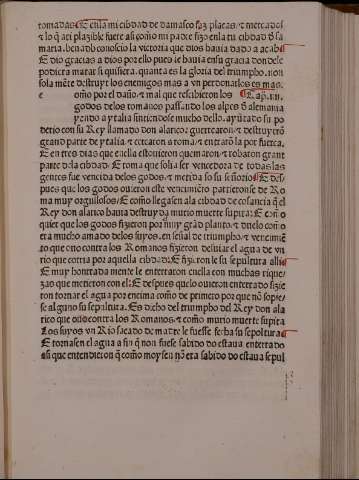 tomadas. E en la mi cibdad de damasco faz plaças. & mercados
& lo q̃ aci plazible fuere asi como mi padre fizo en la tu cibdad d̃ sa
maria. benadb conoscio la victoria que dios hauia dado a acab
E dio gracias a dios por ello pues le hauia en su gracia donde le
podiera matar si quisiera. quanta es la gloria del triumpho. non
sola mẽte destruyr los enemigos mas a vn perdonarlos es mas. le
e como por el daño. & mal que rescibieron los Cap. vii.
godos de los romanos passando los alpes õ alemania
yendo a ytalia sintiendose mucho dello. ayũtado su po
derio con su Rey llamado don alarico: guerrearon & destruyerõ
grand parte de ytalia. & cercaron a roma. & entrarõ la por fuerça.
E en tres dias que en ella estouieron quemaron & robaron grant
parte de la cibdad: E roma que solia ser vencedora de todas las
gentes fue vencida de los godos. & metida so su señorio E des
pues que los godos ouieron este vencimiẽto partieronse de Ro
ma muy orgullosos: E como llegasen a la cibdad de cosancia q̃ el
Rey don alarico hauia destruyda murio muerte supita: E como
quier que los godos fizieron por muy grãd planto. & duelo como
era mucho amado de los suyos. en señal de triumpho. & vencimiẽ
to que ouo contra los Romanos fizieron desuiar el agua de vn
rio que corria por aquella cibdad: E fizieron le su sepultura alli
E muy honrrada mente le enterraron en ella con muchas rique
zas que metieron con el: E despues que lo ouieron enterrado fizie
ron tornar el agua por encima como de primero por que nõ sopie
se alguno su sepultura: Es dicho del triumpho del Rey don ala
rico que ouo contra los Romanos. & como murio muerte supita
Los suyos vn Rio sacado de madre le fuesse fecha su sepoltura
E tornasen el agua a fin q̃ non fuese sabido do estaua enterrado
asi que entendieron q̃ como moysen nõ era sabido do estaua sepul